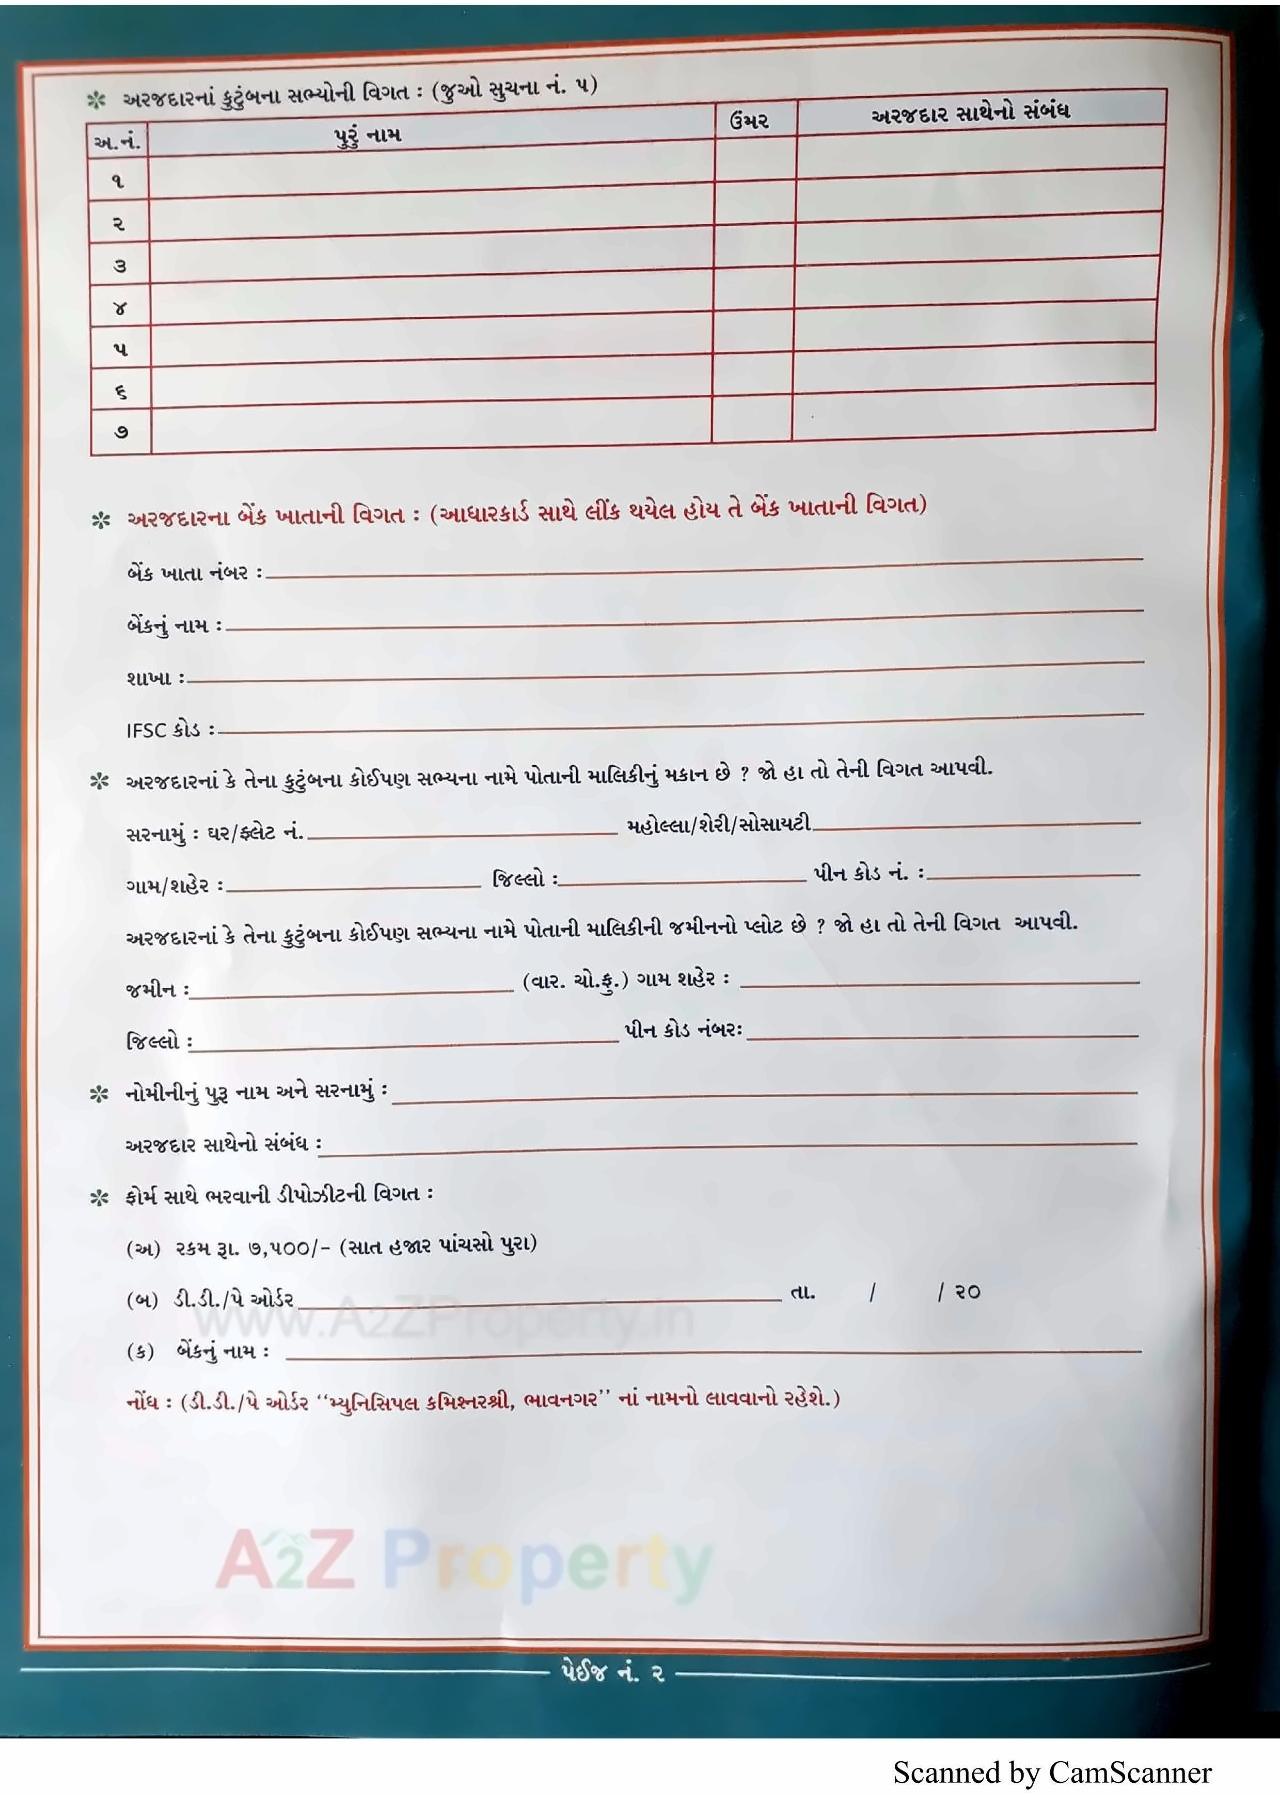 ✲ અરજદારનાં કુટુંબના સભ્યોની વિગત : (જુઓ સુચના નં. ૫)
અ.નં. પુરું નામ ઉંમર અરજદાર સાથેનો સંબંધ
૧
૨
૩
૪
૫
૬
૭
✲ અરજદારના બેંક ખાતાની વિગત : (આધારકાર્ડ સાથે લીંક થયેલ હોય તે બેંક ખાતાની વિગત)
બેંક ખાતા નંબર :
બેંકનું નામ :
શાખા :
IFSC કોડ :
✲ અરજદારનાં કે તેના કુટુંબના કોઈપણ સભ્યના નામે પોતાની માલિકીનું મકાન છે ? જો હા તો તેની વિગત આપવી.
સરનામું : ઘર/ફ્લેટ નં. મહોલ્લા/શેરી/સોસાયટી
ગામ/શહેર : જિલ્લો : પીન કોડ નં. :
અરજદારનાં કે તેના કુટુંબના કોઈપણ સભ્યના નામે પોતાની માલિકીની જમીનનો પ્લોટ છે ? જો હા તો તેની વિગત આપવી.
જમીન : (વાર. ચો.ફુ.) ગામ શહેર :
જિલ્લો : પીન કોડ નંબર:
✲ નોમીનીનું પુરૂ નામ અને સરનામું :
અરજદાર સાથેનો સંબંધ :
✲ ફોર્મ સાથે ભરવાની ડીપોઝીટની વિગત :
(અ) રકમ રૂા. ૭,૫૦૦/- (સાત હજાર પાંચસો પુરા)
(બ) ડી.ડી./પે ઓર્ડર તા. / / ૨૦
www.A2ZProperty.in
(ક) બેંકનું નામ :
નોંધ : (ડી.ડી./પે ઓર્ડર ‘‘મ્યુનિસિપલ કમિશ્નરશ્રી, ભાવનગર’’ નાં નામનો લાવવાનો રહેશે.)
A2Z Property
પેઈજ નં. ૨
Scanned by CamScanner